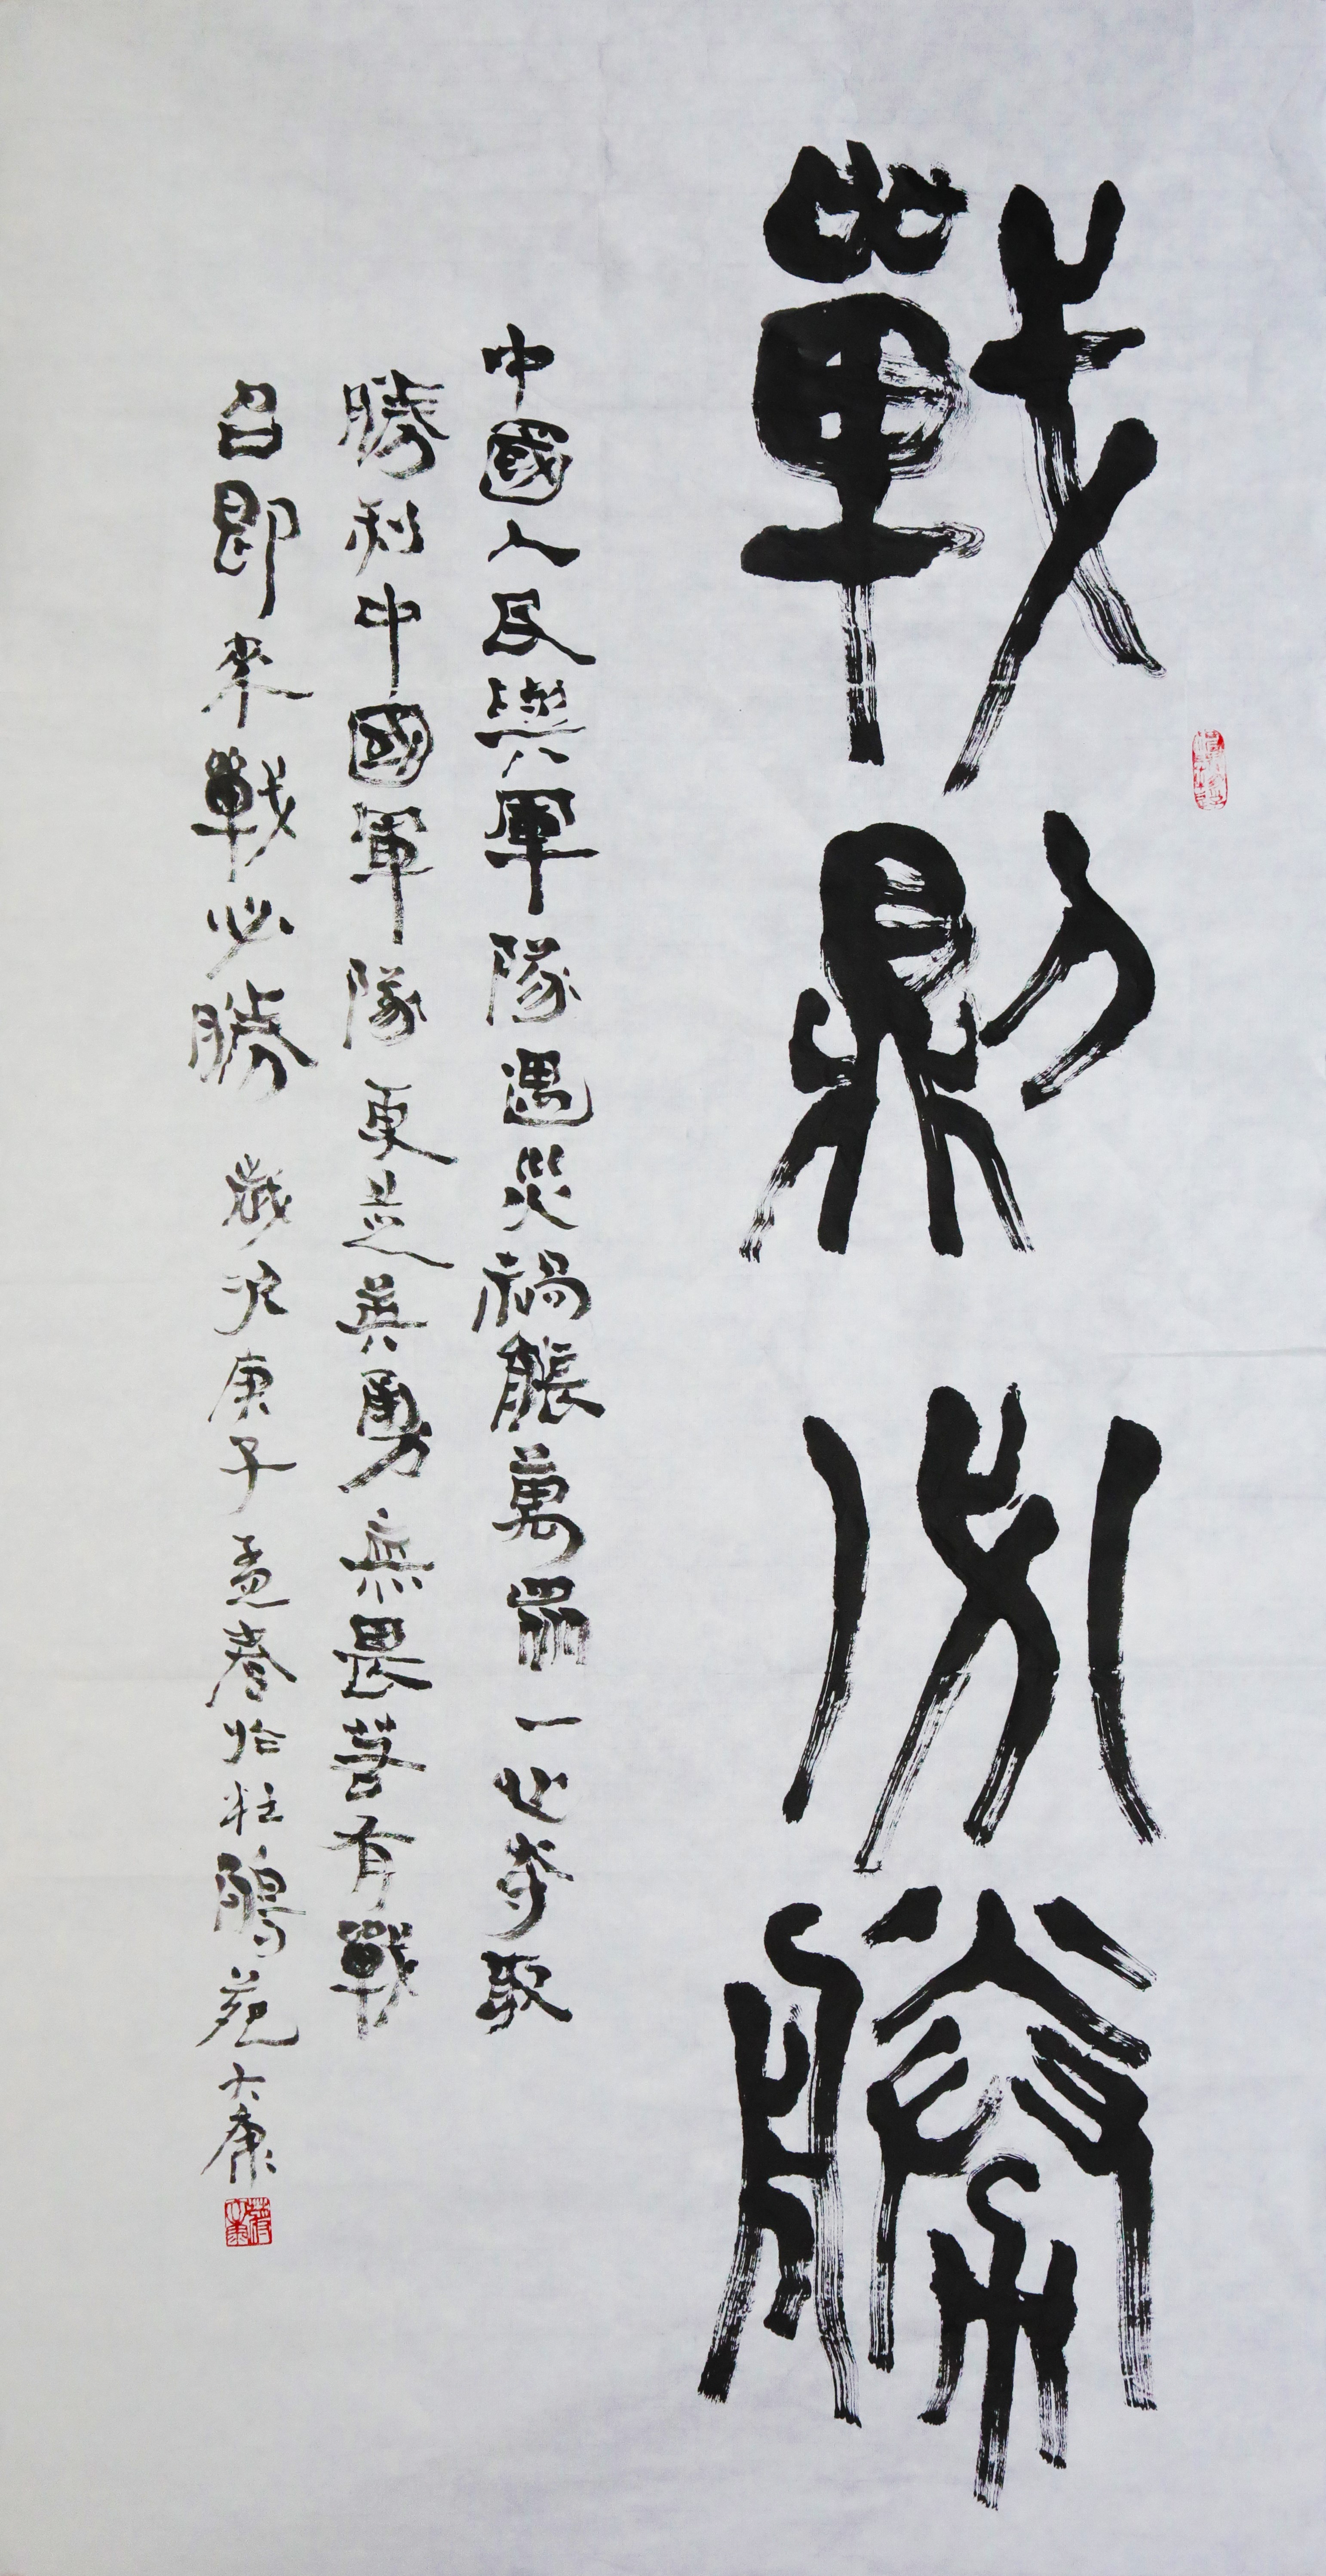 戰則必勝
中國人民與軍隊遇災禍能萬眾一心夺取
勝利中國軍隊更是英勇無畏若有戰
召即来戰必勝 歲次庚子孟春於 鵬苑大康